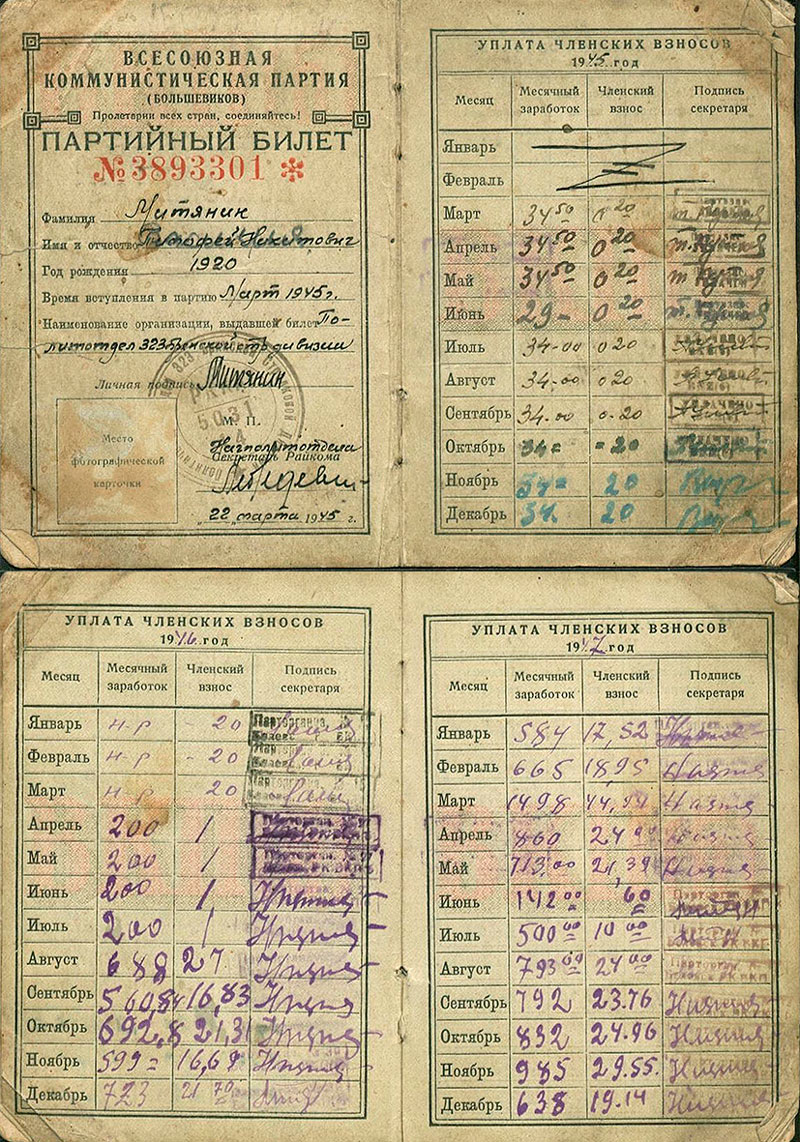 ВСЕСОЮЗНАЯ
КОММУНИСТИЧЕСКАЯ ПАРТИЯ
(БОЛЬШЕВИКОВ)
Пролетарии всех стран, соединяйтесь!
ПАРТИЙНЫЙ БИЛЕТ
№3893301
Фамилия Митянин
Имя и отчество Тимофей Никитович
Год рождения 1920
Время вступления в партию Март 1945г.
Наименование организации, выдавшей билет По-
литотдел 323 Брянской стр. дивизии
Личная подпись Митянин
М. П.
Место
фотографической
карточки
Нач политотдела
Секретарь Райкома
"22" марта 1945 г.
УПЛАТА ЧЛЕНСКИХ ВЗНОСОВ
1945 год
Месяц Месячный заработок Членский взнос Подпись секретаря
Январь
Февраль
Март 34 50 0 20
Апрель 34 50 0 20
Май 34 50 0 20
Июнь 29- 0 20
Июль 34-00 0 20
Август 34-00 0 20
Сентябрь 34-00 0-20
Октябрь 34= =20
Ноябрь 20
Декабрь 34. 20
УПЛАТА ЧЛЕНСКИХ ВЗНОСОВ
1946 год
Месяц Месячный заработок Членский взнос Подпись секретаря
Январь н-р -20
Февраль н-р -20
Март н-р -20
Апрель 200 1
Май 200 1
Июнь 200 1
Июль 200 1
Август 688 27
Сентябрь 560,84 16,83
Октябрь 692,8 21,31
Ноябрь 599= 16,69
Декабрь 723 21 70
УПЛАТА ЧЛЕНСКИХ ВЗНОСОВ
1947 год
Месяц Месячный заработок Членский взнос Подпись секретаря
Январь 584 17,52
Февраль 665 18,95
Март 1498 44,94
Апрель 860 24
Май 713,00 21,39
Июнь 142 00 60
Июль 500 00 10 00
Август 793 00 24 00
Сентябрь 792 23.76
Октябрь 832 24.96
Ноябрь 985 29.55.
Декабрь 638 19.14